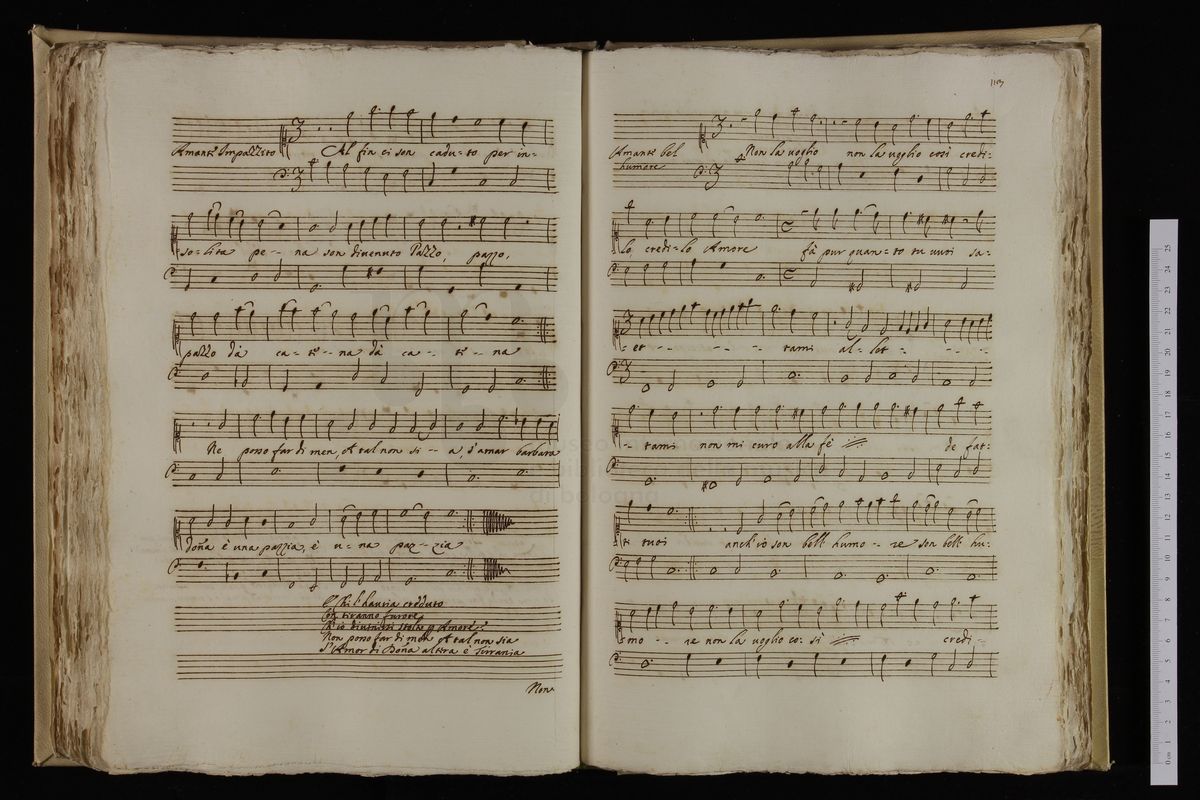 Amante Impazzito Al fin ci son cadu-to per in-
so-lita pe--na son divenuto Pazzo, pazzo,
pazzo dà ca-te--na dà ca--te--na
Ne posso far di men, et tal non si--a, s'amar barbara
doña è una pazzia, è u-na paz-zia
Non posso far di men et tal non sia
S'Amor di Doña altera è Tirrania
Non
113
Amante bel humore Non la voglio non la voglio così credi-
lo, credi-lo Amore fà pur quan-to tu vuoi sa-
-et - - - - tami al-let - - - -
-- tami non mi curo alla fè de fat-
ti tuoi anch'io son bell humo--re son bell hu-
mo--re non la voglio co-si credi-
museo
bibli
di bologna
25
24
23
22
21
20
19
18
17
16
15
14
13
12
11
10
9
8
7
6
5
4
3
2
1
0 cm